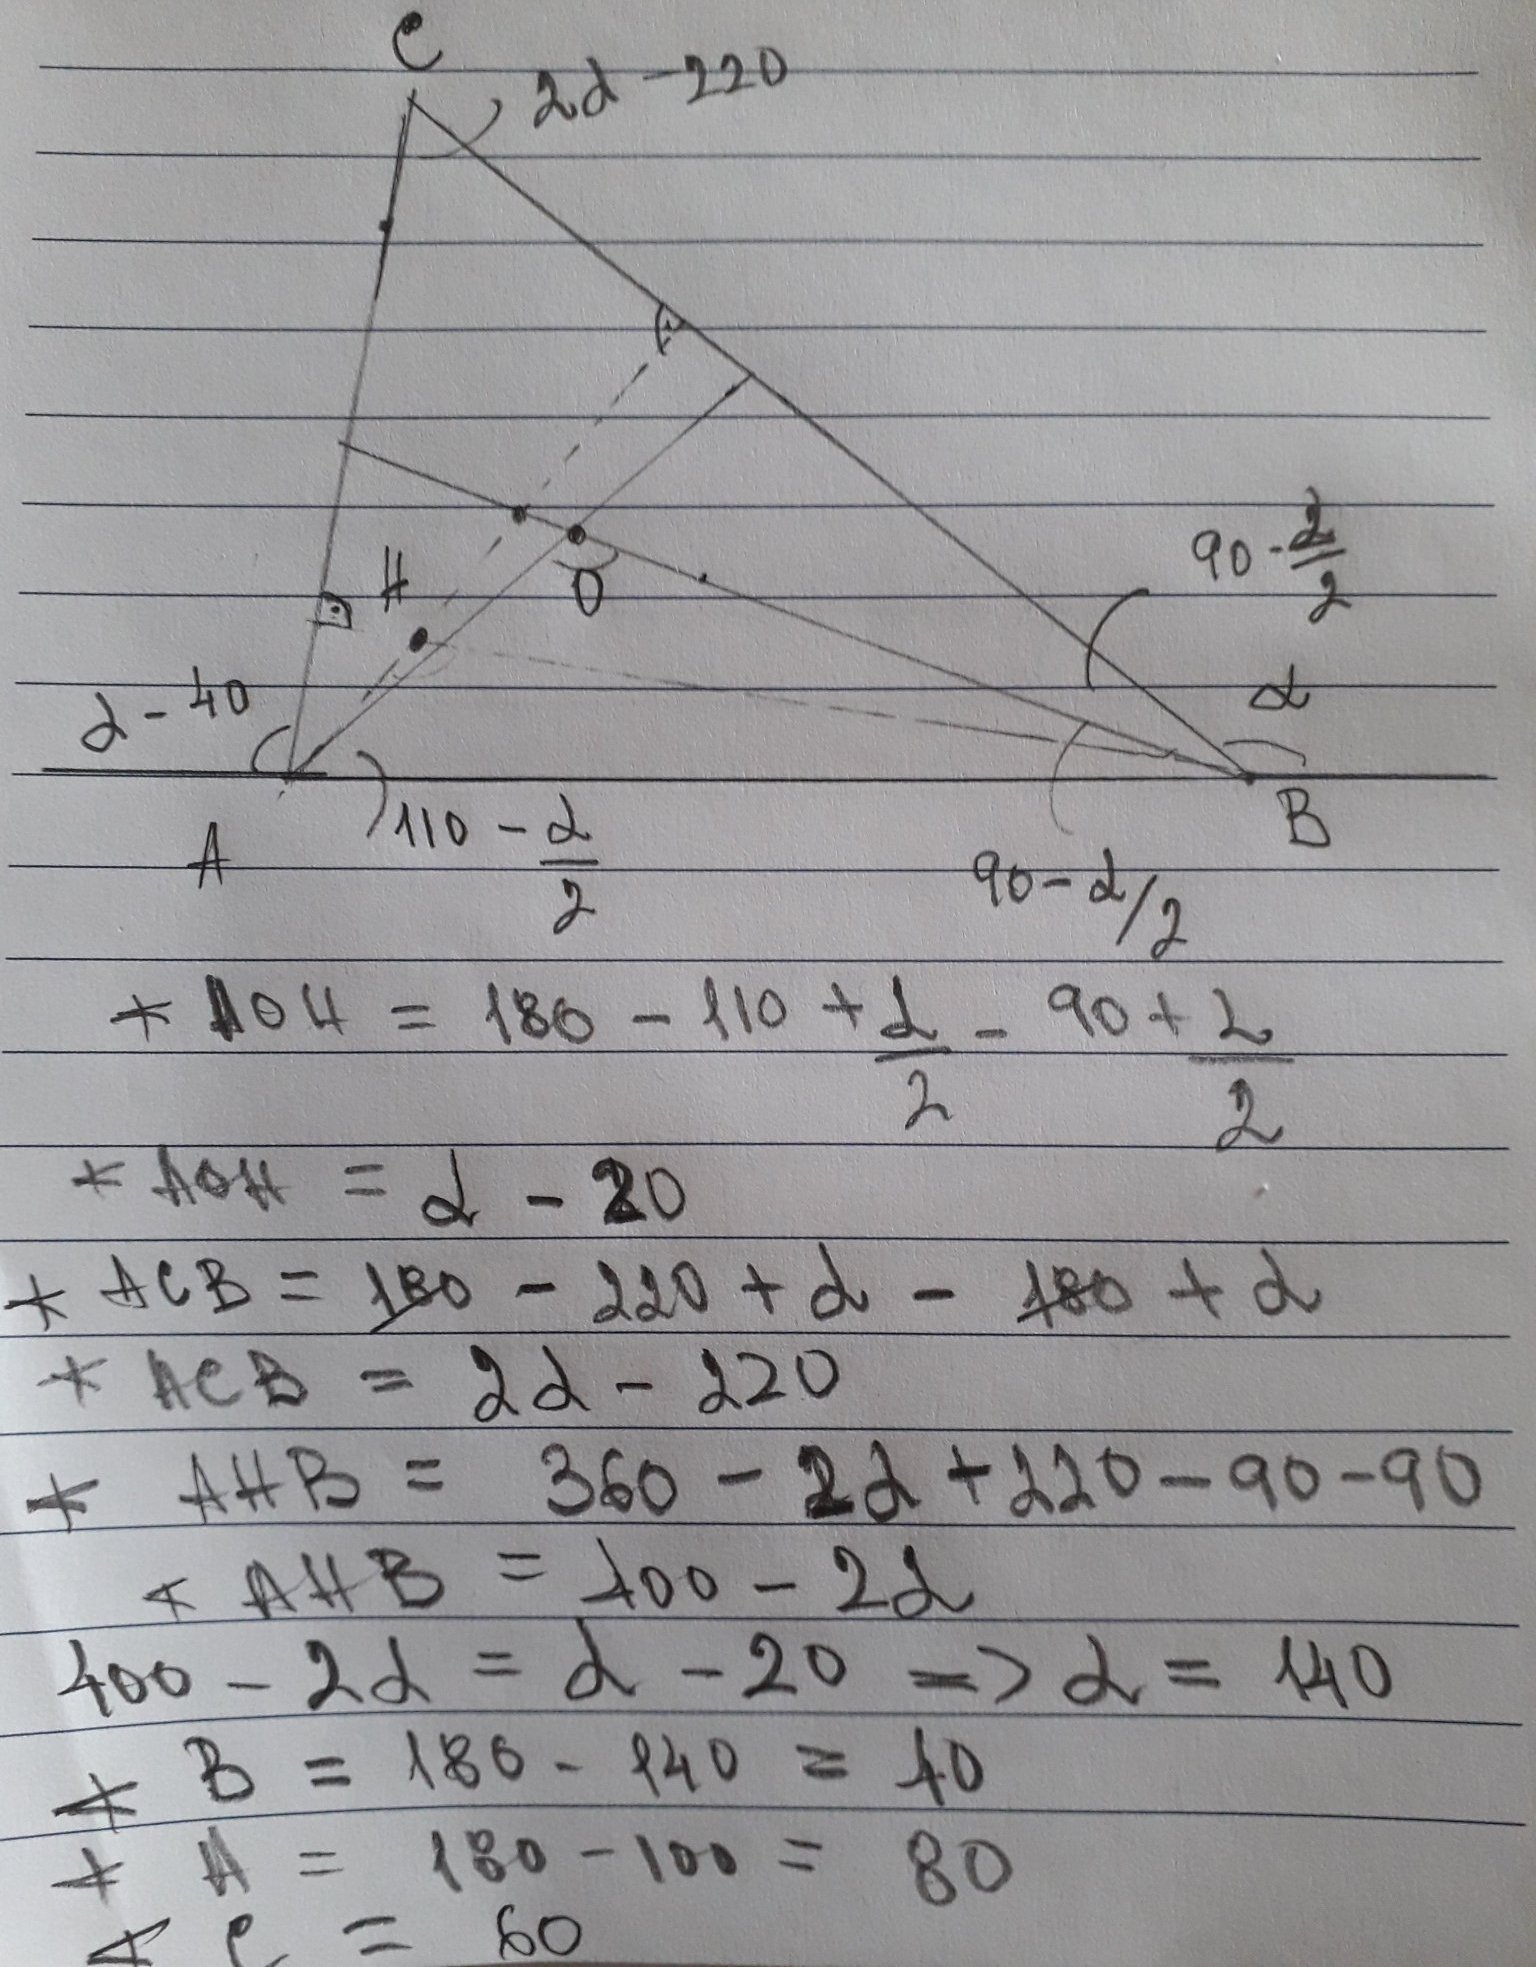 C
2α - 220
H
O
90 - α/2
α - 40
α
A
110 - α/2
90 - α/2
B
* AOH = 180 - 110 + α/2 - 90 + α/2
* AOH = α - 20
* ACB = 180 - 220 + α - 180 + α
* ACB = 2α - 220
* AHB = 360 - 2α + 220 - 90 - 90
* AHB = 400 - 2α
400 - 2α = α - 20 => α = 140
* B = 180 - 140 = 40
* A = 180 - 100 = 80
* C = 60